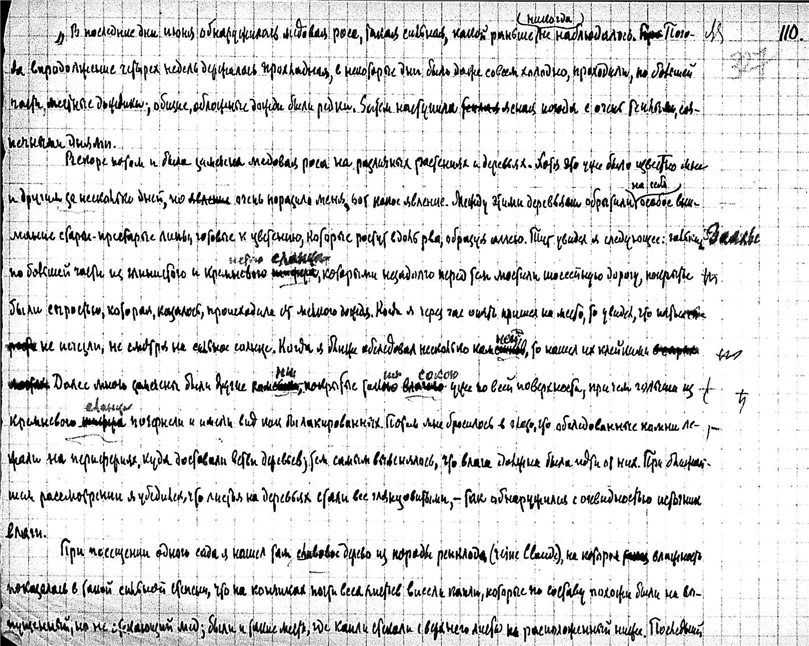 (никогда)
„В последние дни июня обнаружилась медовая роса, такая сильная, какой раньше не наблюдалось. Пого- 110.
да в продолжение четырех недель держалась прохладная, в некоторые дни было даже совсем холодно, проходили, по большей
части, местные дождики; общие, обложные дожди были редки. Затем наступила ясная погода с очень теплыми, сол-
нечными днями.
Вскоре потом и была замечена медовая роса на различных растениях и деревьях. Хотя это уже было известно мне
и другим за несколько дней, но очень поразило меня вот какое явление. Между этими деревьями обратили на себя особое вни-
мание старые-престарые липы, готовые к цветению, которые растут вдоль рва, образуя аллею. Тут увидел я следующее:
по большей части из глинистого и кремневого сланца, которыми незадолго перед тем мостили шоссейную дорогу, покрыты
были сыростью, которая, казалось, происходила от мелкого дождя. Когда я через час опять пришел на место, то увидел, что
не исчезли, не смотря на сильное солнце. Когда я ближе обследовал несколько камней, то нашел их клейкими
Далее много замечены были другие покрытые соком уже по всей поверхности, причем голыши из
кремневого сланца почернели и имели вид как бы лакированных. Потом мне бросилось в глаза, что обследованные камни ле-
жали на перифериях, куда доставали ветви деревьев; тем самым выяснялось, что влага должна была идти от них. При ближай-
шем рассмотрении я убедился, что листья на деревьях стали все глянцовитыми, – так обнаружился с очевидностью источник
влаги.
При посещении одного сада я нашел там сливовое дерево из породы ренклода (reine Claude), на котором влажность
показалась в такой сильной степени, что на кончиках почти всех листьев висели капли, которые по составу похожи были на вы-
пущенный, но не стекающий мед; были и такие места, где капли стекали с верхнего листа на расположенный ниже. Последний